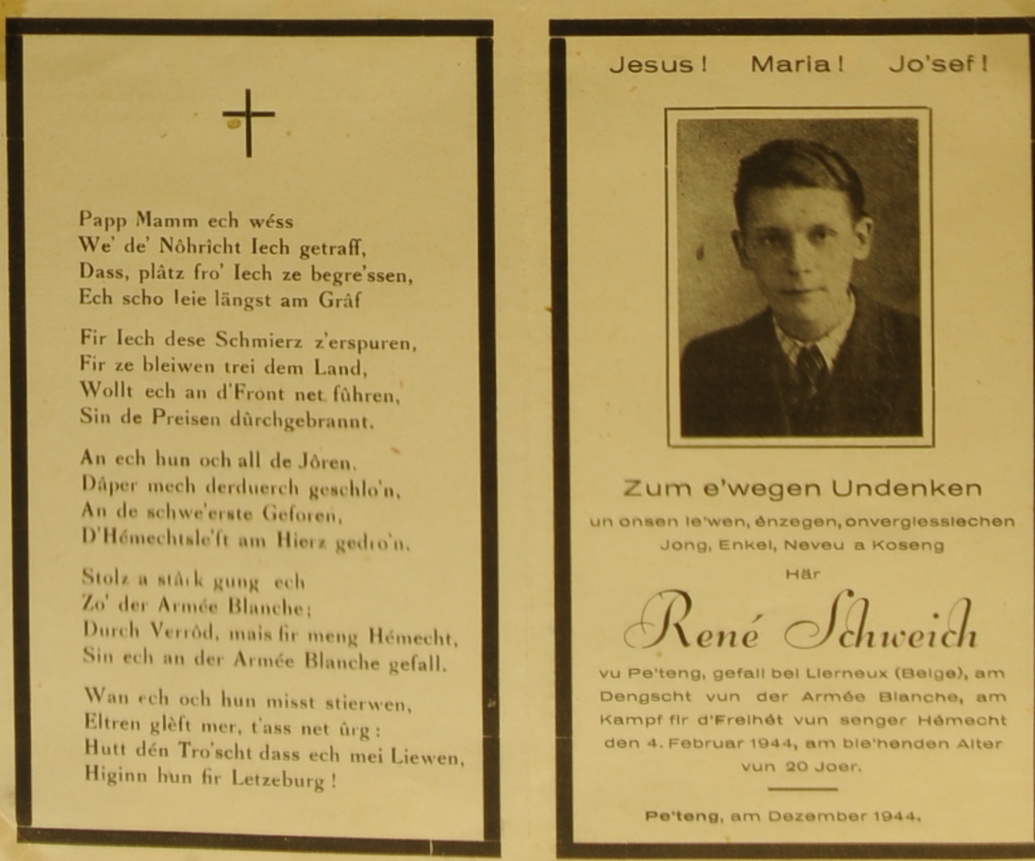 Papp Mamm ech wéss
We' de' Nôhrîcht Iech getraff,
Dass, plâtz fro' Iech ze begre'ssen,
Ech scho leie längst am Grâf
Fir Iech dese Schmierz z'erspuren,
Fir ze bleiwen trei dem Land,
Wollt ech an d'Front net fûhren,
Sin de Preisen dûrchgebrannt.
An ech hun och all de Jôren,
Dâper mech derduerch geschlo'n,
An de schwe'erste Geforen,
D'Hémechtsle'ft am Hierz gedro'n.
Stolz a stârk gung ech
Zo' der Armée Blanche;
Durch Verrôd, mais fir meng Hémecht,
Sin ech an der Armée Blanche gefall.
Wan ech och hun misst stierwen,
Eltren glèft mer, t'ass net ûrg:
Hutt dén Tro'scht dass ech mei Liewen,
Higinn hun fir Letzeburg!
Jesus! Maria! Jo'sef!
Zum e'wegen Undenken
un onsen le'wen, énzegen, onvergiesslechen
Jong, Enkel, Neveu a Koseng
Här
René Schweich
vu Pe'teng, gefall bei Lierneux (Belge), am
Dengscht vun der Armée Blanche, am
Kampf fir d'Freihét vun senger Hémecht
den 4. Februar 1944, am ble'henden Alter
vun 20 Joer.
Pe'teng, am Dezember 1944.